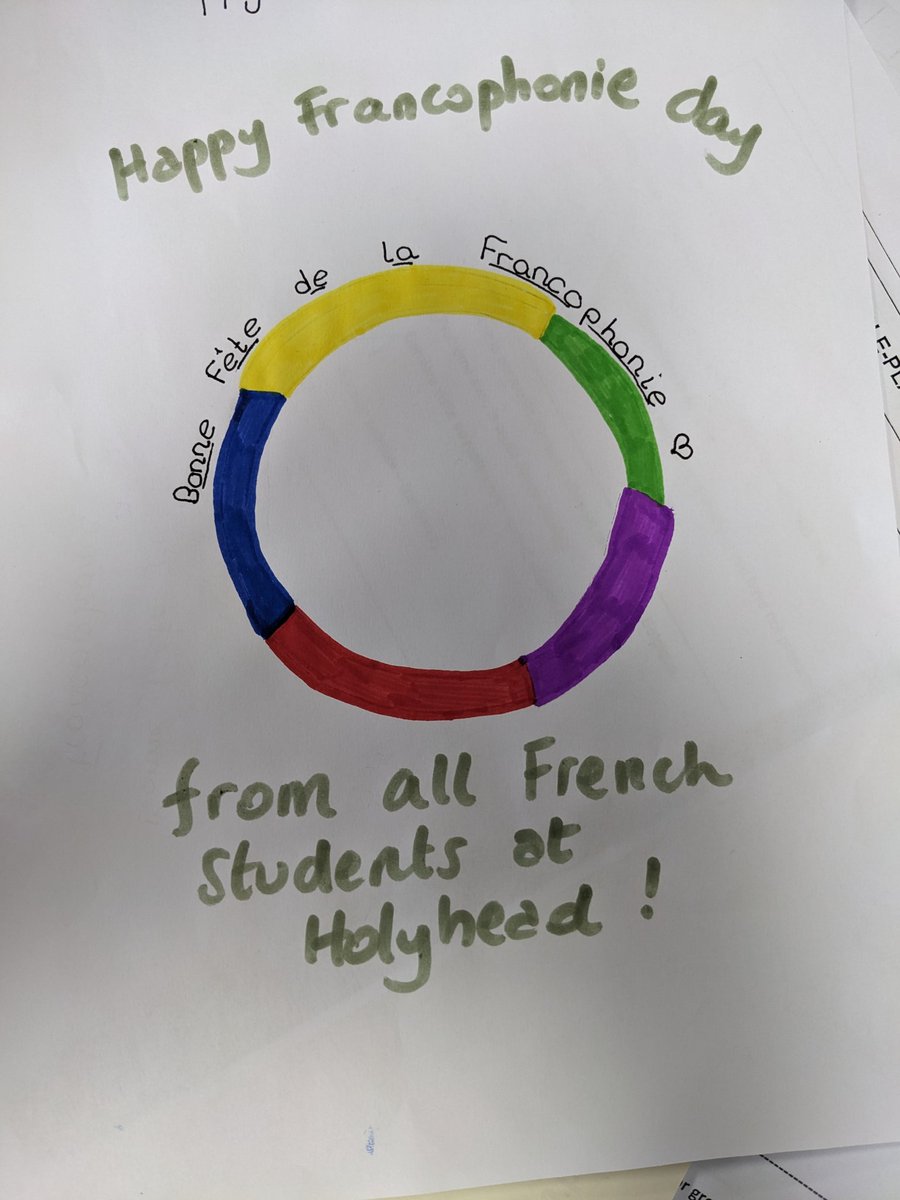 Happy Francophonie day
Bonne Fête de la Francophonie
from all French
Students at
Holyhead !